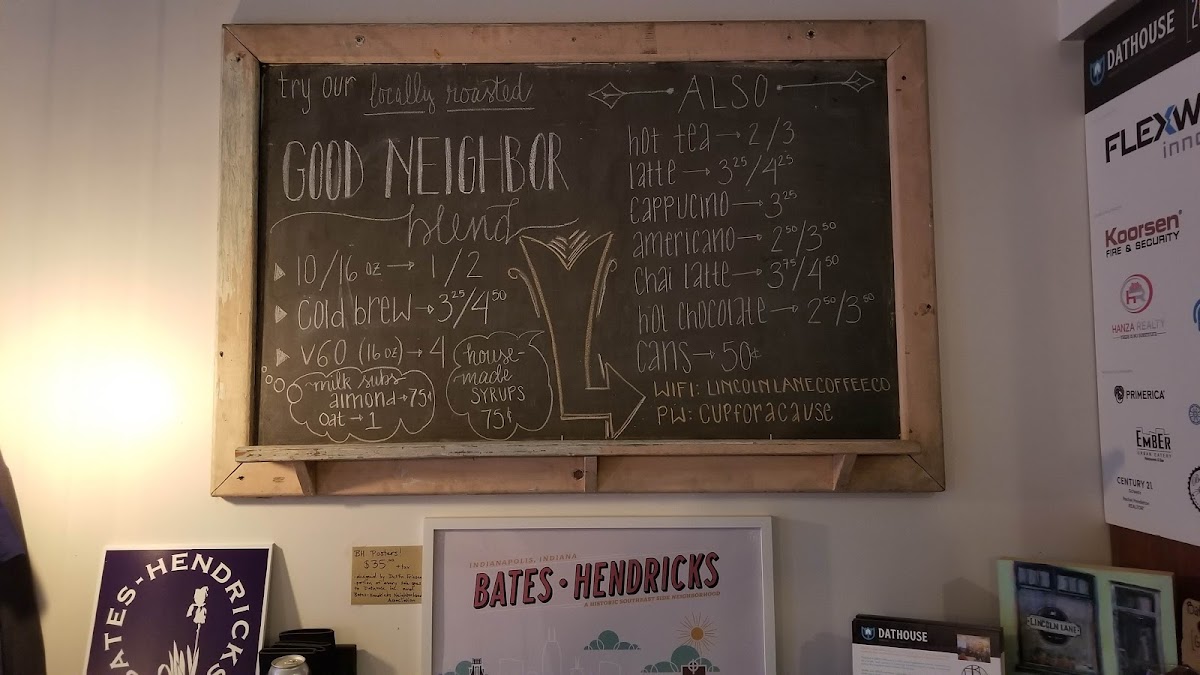 try our locally roasted
GOOD NEIGHBOR
blend
10/16 oz → 1/2
cold brew → 3²⁵/4⁵⁰
V60 (16 oz) → 4
milk subs
almond → 75¢
oat → 1
house-
made
SYRUPS
75¢
ALSO
hot tea → 2/3
latte → 3²⁵/4²⁵
cappucino → 3²⁵
americano → 2⁵⁰/3⁵⁰
chai latte → 3⁷⁵/4⁵⁰
hot chocolate → 2⁵⁰/3⁵⁰
cans → 50¢
WIFI: LINCOLNLANECOFFEECO
PW: cupforacause
DATHOUSE
FLEXW
inno
Koorsen
FIRE & SECURITY
HANZA REALTY
PRIMERICA
EMBER
CENTURY 21
BATES-HENDRICKS
BH Posters!
$35 + tax
INDIANAPOLIS, INDIANA
BATES • HENDRICKS
A HISTORIC SOUTHEAST SIDE NEIGHBORHOOD
DATHOUSE
LINCOLN LANE